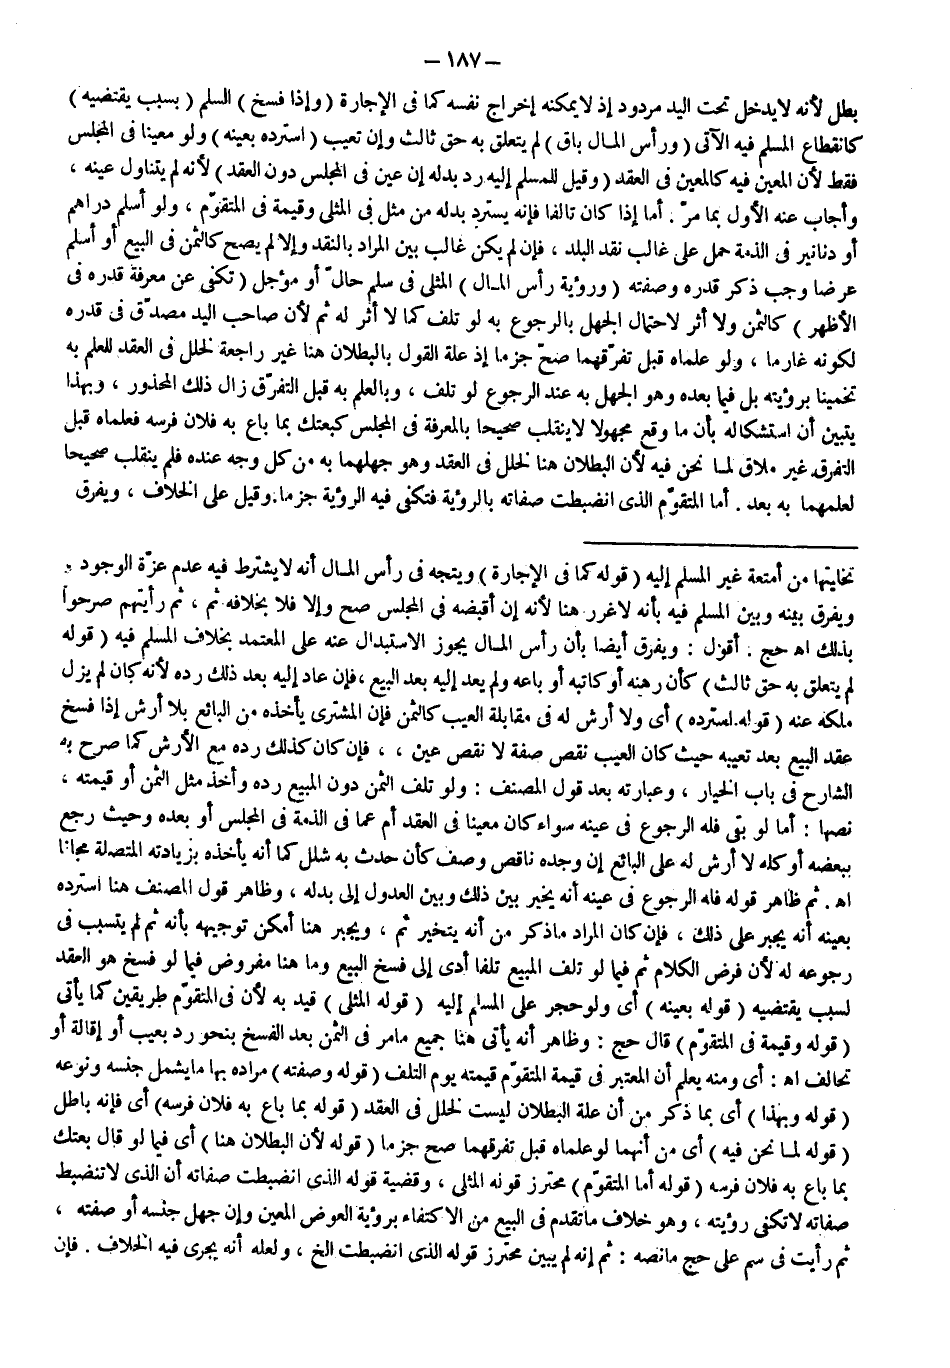 — ١٨٧ —
بطل لأنه لايدخل تحت اليد مردود إذ لايمكنه إخراج نفسه كما فى الإجارة ( وإذا فسخ ) السلم ( بسبب يقتضيه )
كانقطاع المسلم فيه الآتى ( ورأس المـال باق ) لم يتعلق به حق ثالث وإن تعيب ( استرده بعينه ) ولو معينا فى المجلس
فقط لأن المعين فيه كالمعين فى العقد ( وقيل للمسلم إليه رد بدله إن عين فى المجلس دون العقد ) لأنه لم يتناول عينه ،
وأجاب عنه الأول بما مرّ . أما إذا كان تالفا فإنه يسترد بدله من مثل فى المثلى وقيمة فى المتقوّم ، ولو أسلم دراهم
أو دنانير فى الذمة حمل على غالب نقد البلد ، فإن لم يكن غالب بين المراد بالنقد وإلا لم يصح كالثمن فى البيع أو أسلم
عرضا وجب ذكر قدره وصفته ( ورؤية رأس المـال ) المثلى فى سلم حالّ أو مؤجل ( تكفى عن معرفة قدره فى
الأظهر ) كالثمن ولا أثر لاحتمال الجهل بالرجوع به لو تلف كما لا أثر له ثم لأن صاحب اليد مصدّق فى قدره
لكونه غارما ، ولو علماه قبل تفرّقهما صحّ جزما إذ علة القول بالبطلان هنا غير راجعة لخلل فى العقد للعلم به
تخمينا برؤيته بل فيما بعده وهو الجهل به عند الرجوع لو تلف ، وبالعلم به قبل التفرّق زال ذلك المحذور ، وبهذا
يتبين أن استشكاله بأن ما وقع مجهولا لاينقلب صحيحا بالمعرفة فى المجلس كبعتك بما باع به فلان فرسه فعلماه قبل
التفرق غير ملاق لمـا نحن فيه لأن البطلان هنا لخلل فى العقد وهو جهلهما به من كل وجه عنده فلم ينقلب صحيحا
لعلمهما به بعد . أما المتقوّم الذى انضبطت صفاته بالرؤية فتكفى فيه الرؤية جزما.وقيل على الخلاف ، ويفرق
تخليتها من أمتعة غير المسلم إليه ( قوله كما فى الإجارة ) ويتجه فى رأس المـال أنه لايشترط فيه عدم عزّة الوجود ،
ويفرق بينه وبين المسلم فيه بأنه لاغرر هنا لأنه إن أقبضه فى المجلس صح وإلا فلا بخلافه ثم ، ثم رأيتهم صرحوا
بذلك اه حج . أقول : ويفرق أيضا بأن رأس المـال يجوز الاستبدال عنه على المعتمد بخلاف المسلم فيه ( قوله
لم يتعلق به حق ثالث ) كأن رهنه أو كاتبه أو باعه ولم يعد إليه بعد البيع ، فإن عاد إليه بعد ذلك رده لأنه كان لم يزل
ملكه عنه ( قوله استرده ) أى ولا أرش له فى مقابلة العيب كالثمن فإن المشترى يأخذه من البائع بلا أرش إذا فسخ
عقد البيع بعد تعيبه حيث كان العيب نقص صفة لا نقص عين ، ، فإن كان كذلك رده مع الأرش كما صرح به
الشارح فى باب الخيار ، وعبارته بعد قول المصنف : ولو تلف الثمن دون المبيع رده وأخذ مثل الثمن أو قيمته ،
نصها : أما لو بقى فله الرجوع فى عينه سواء كان معينا فى العقد أم عما فى الذمة فى المجلس أو بعده وحيث رجع
ببعضه أو كله لا أرش له على البائع إن وجده ناقص وصف كأن حدث به شلل كما أنه يأخذه بزيادته المتصلة مجانا
اه . ثم ظاهر قوله فله الرجوع فى عينه أنه يخير بين ذلك وبين العدول إلى بدله ، وظاهر قول المصنف هنا استرده
بعينه أنه يجبر على ذلك ، فإن كان المراد ماذكر من أنه يتخير ثم ، ويجبر هنا أمكن توجيهه بأنه ثم لم يتسبب فى
رجوعه له لأن فرض الكلام ثم فيما لو تلف المبيع تلفا أدى إلى فسخ البيع وما هنا مفروض فيما لو فسخ هو العقد
لسبب يقتضيه ( قوله بعينه ) أى ولو حجر على المسلم إليه ( قوله المثلى ) قيد به لأن فى المتقوّم طريقين كما يأتى
( قوله وقيمة فى المتقوّم ) قال حج : وظاهر أنه يأتى هنا جميع مامر فى الثمن بعد الفسخ بنحو رد بعيب أو إقالة أو
تحالف اه : أى ومنه يعلم أن المعتبر فى قيمة المتقوّم قيمته يوم التلف ( قوله وصفته ) مراده بها مايشمل جنسه ونوعه
( قوله وبهذا ) أى بما ذكر من أن علة البطلان ليست لخلل فى العقد ( قوله بما باع به فلان فرسه) أى فإنه باطل
( قوله لمـا نحن فيه ) أى من أنهما لو علماه قبل تفرقهما صح جزما ( قوله لأن البطلان هنا ) أى فيما لو قال بعتك
بما باع به فلان فرسه ( قوله أما المتقوّم ) محترز قوله المثلى ، وقضية قوله الذى انضبطت صفاته أن الذى لاتنضبط
صفاته لاتكفى رؤيته ، وهو خلاف ماتقدم فى البيع من الاكتفاء برؤية العوض المعين وإن جهل جنسه أو صفته ،
ثم رأيت فى سم على حج مانصه : ثم إنه لم يبين محترز قوله الذى انضبطت الخ ، ولعله أنه يجرى فيه الخلاف . فإن